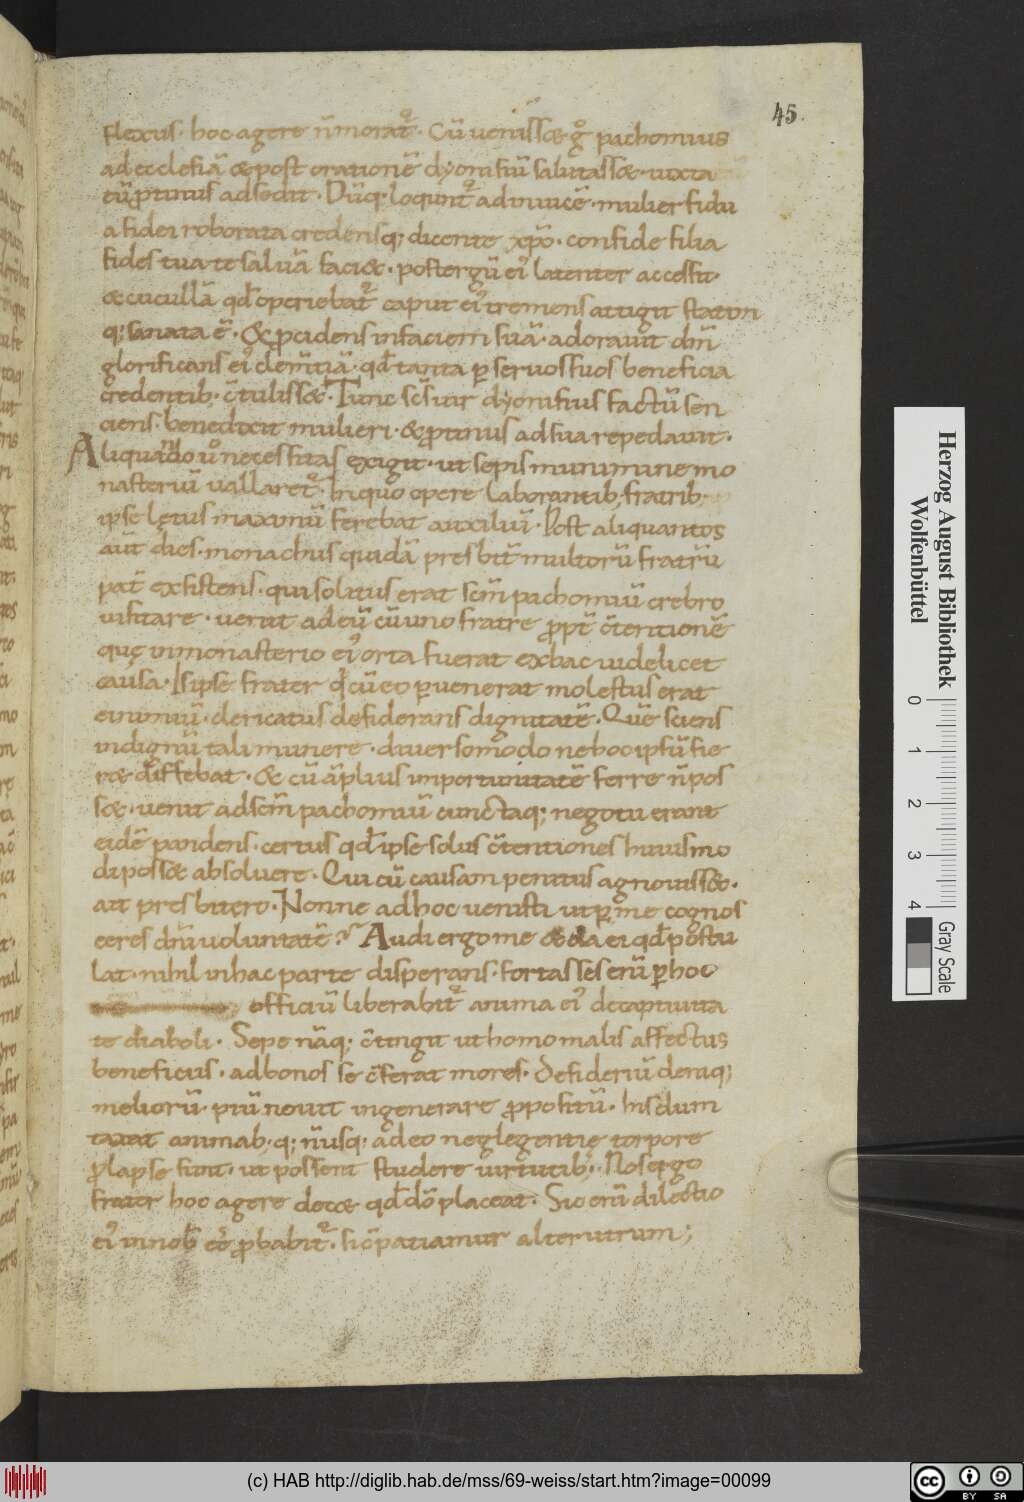 45.
flexus· hoc agere n̄ morat᷑· Cū venissæ gͦ pachomius
ad ecclesiā & post orationē dyonisiū salutassæ· iuxta
eū ꝓtinus adsedit· Dūq; loqunt᷑ ad inuicē· mulier fidu
a fidei roborata credensq; dicente xp̄o· confide filia
fides tua te saluā faci&· postergū ei᷒ latenter accessit·
& cucullā qd̄ operiebat᷑ caput ei᷒ tremens attigit statim
q; sanata ē· & ꝓcidens in faciem suā· adorauit dn̄m
glorificans ei᷒ clem̄tiā· qd̄ tanta ꝑ seruos suos beneficia
credentib; c̄tulissæ· Tunc sc̄s uir dyonisius factū sen
ciens· benedixit mulieri· & ꝓtinus ad sua repedauit·
Aliquando ūo necessitas exigit· ut sepis munimine mo
nasteriū vallaret᷑· In quo opere laborantib; fratrib;
ipse lętus maximū ferebat auxiliū· Post aliquantos
aūt dies· monachus quidā presbit̄ multorū fratrū
pat̄ exsistens· qui solitus erat sc̄m pachomiū crebro
visitare· uenit ad eū cū uno fratre ꝓpt̄ c̄tentionē
quę in monasterio ei᷒ orta fuerat ex hac uidelicet
causa· Is ipse frater q̄ cū eo ꝑuenerat molestus erat
ei nimiū· clericatus desiderans dignitatē· Quē sciens
indignū tali munere· diuerso modo ne hoc ipsū fie
ræ differebat· & cū āplius importunitatē ferre n̄ pos
sæ· uenit ad sc̄m pachomiū cunctaq; negotii erant
eidē pandens· certus qd̄ ipse solus c̄tentiones huiusmo
di possæ absoluere· Qui cū causam penitus agnouissæ·
ait presbitero· Nonne ad hoc uenisti ut ꝑ me cognos
ceres dn̄i voluntatē? Audi ergo me & da ei qd̄ postu
lat· nihil in hac parte disperans· fortasses enī ꝑ hoc
officiū liberabit᷑ anima ei᷒ de captiuita
te diaboli· Sepe nāq; c̄tingit ut homo malis affectus
beneficiis· ad bonos se c̄ferat mores· Desideriū denaq;
meliorū· piū nouit ingenerare ꝓpositū· his dum
taxat animab; q; n̄ usq; adeo neglegentię torpore
ꝓlapse sunt· ut possent studere uirtutib;· Nos ergo
frater hoc agere decæ qd̄ dō placeat· Sic enī dilectio
ei᷒ in nob̄ cō ꝓbabit᷑· si c̄patiamur alterutrum;
Herzog August Bibliothek
Wolfenbüttel
0 1 2 3 4
Gray Scale
(c) HAB http://diglib.hab.de/mss/69-weiss/start.htm?image=00099
cc BY SA